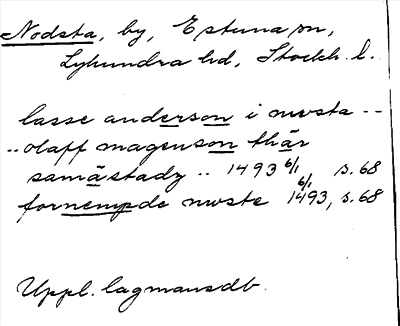 Nodsta, by, Estuna sn,
Lyhundra hd, Stockh. l.
lasse anderson i nwsta --
.. olaff magenson thär
samästadz .. 1493 6/1 s. 68
fornempde nwste 1493 6/1, s. 68
Uppl. lagmansdb.